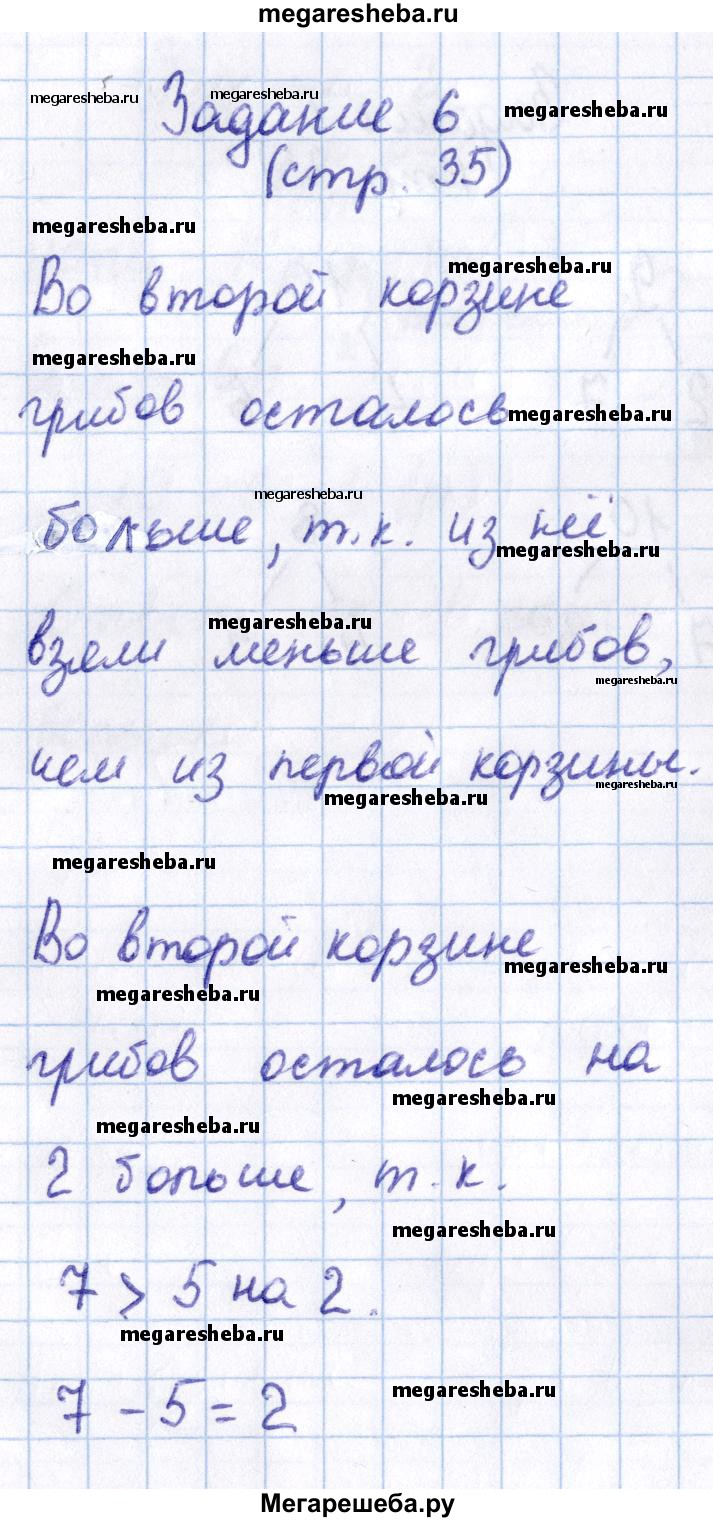 megaresheba.ru
megaresheba.ru megaresheba.ru megaresheba.ru
Задание 6
(стр. 35)
megaresheba.ru
megaresheba.ru
Во второй корзине
megaresheba.ru
грибов осталось megaresheba.ru
megaresheba.ru
больше, т.к. из неё
megaresheba.ru
megaresheba.ru
взяли меньше грибов,
megaresheba.ru
чем из первой корзины.
megaresheba.ru megaresheba.ru
megaresheba.ru
Во второй корзине
megaresheba.ru
megaresheba.ru
грибов осталось на
megaresheba.ru
megaresheba.ru
2 больше, т.к.
megaresheba.ru
7 > 5 на 2.
megaresheba.ru
7 - 5 = 2 megaresheba.ru
Мегарешеба.ру